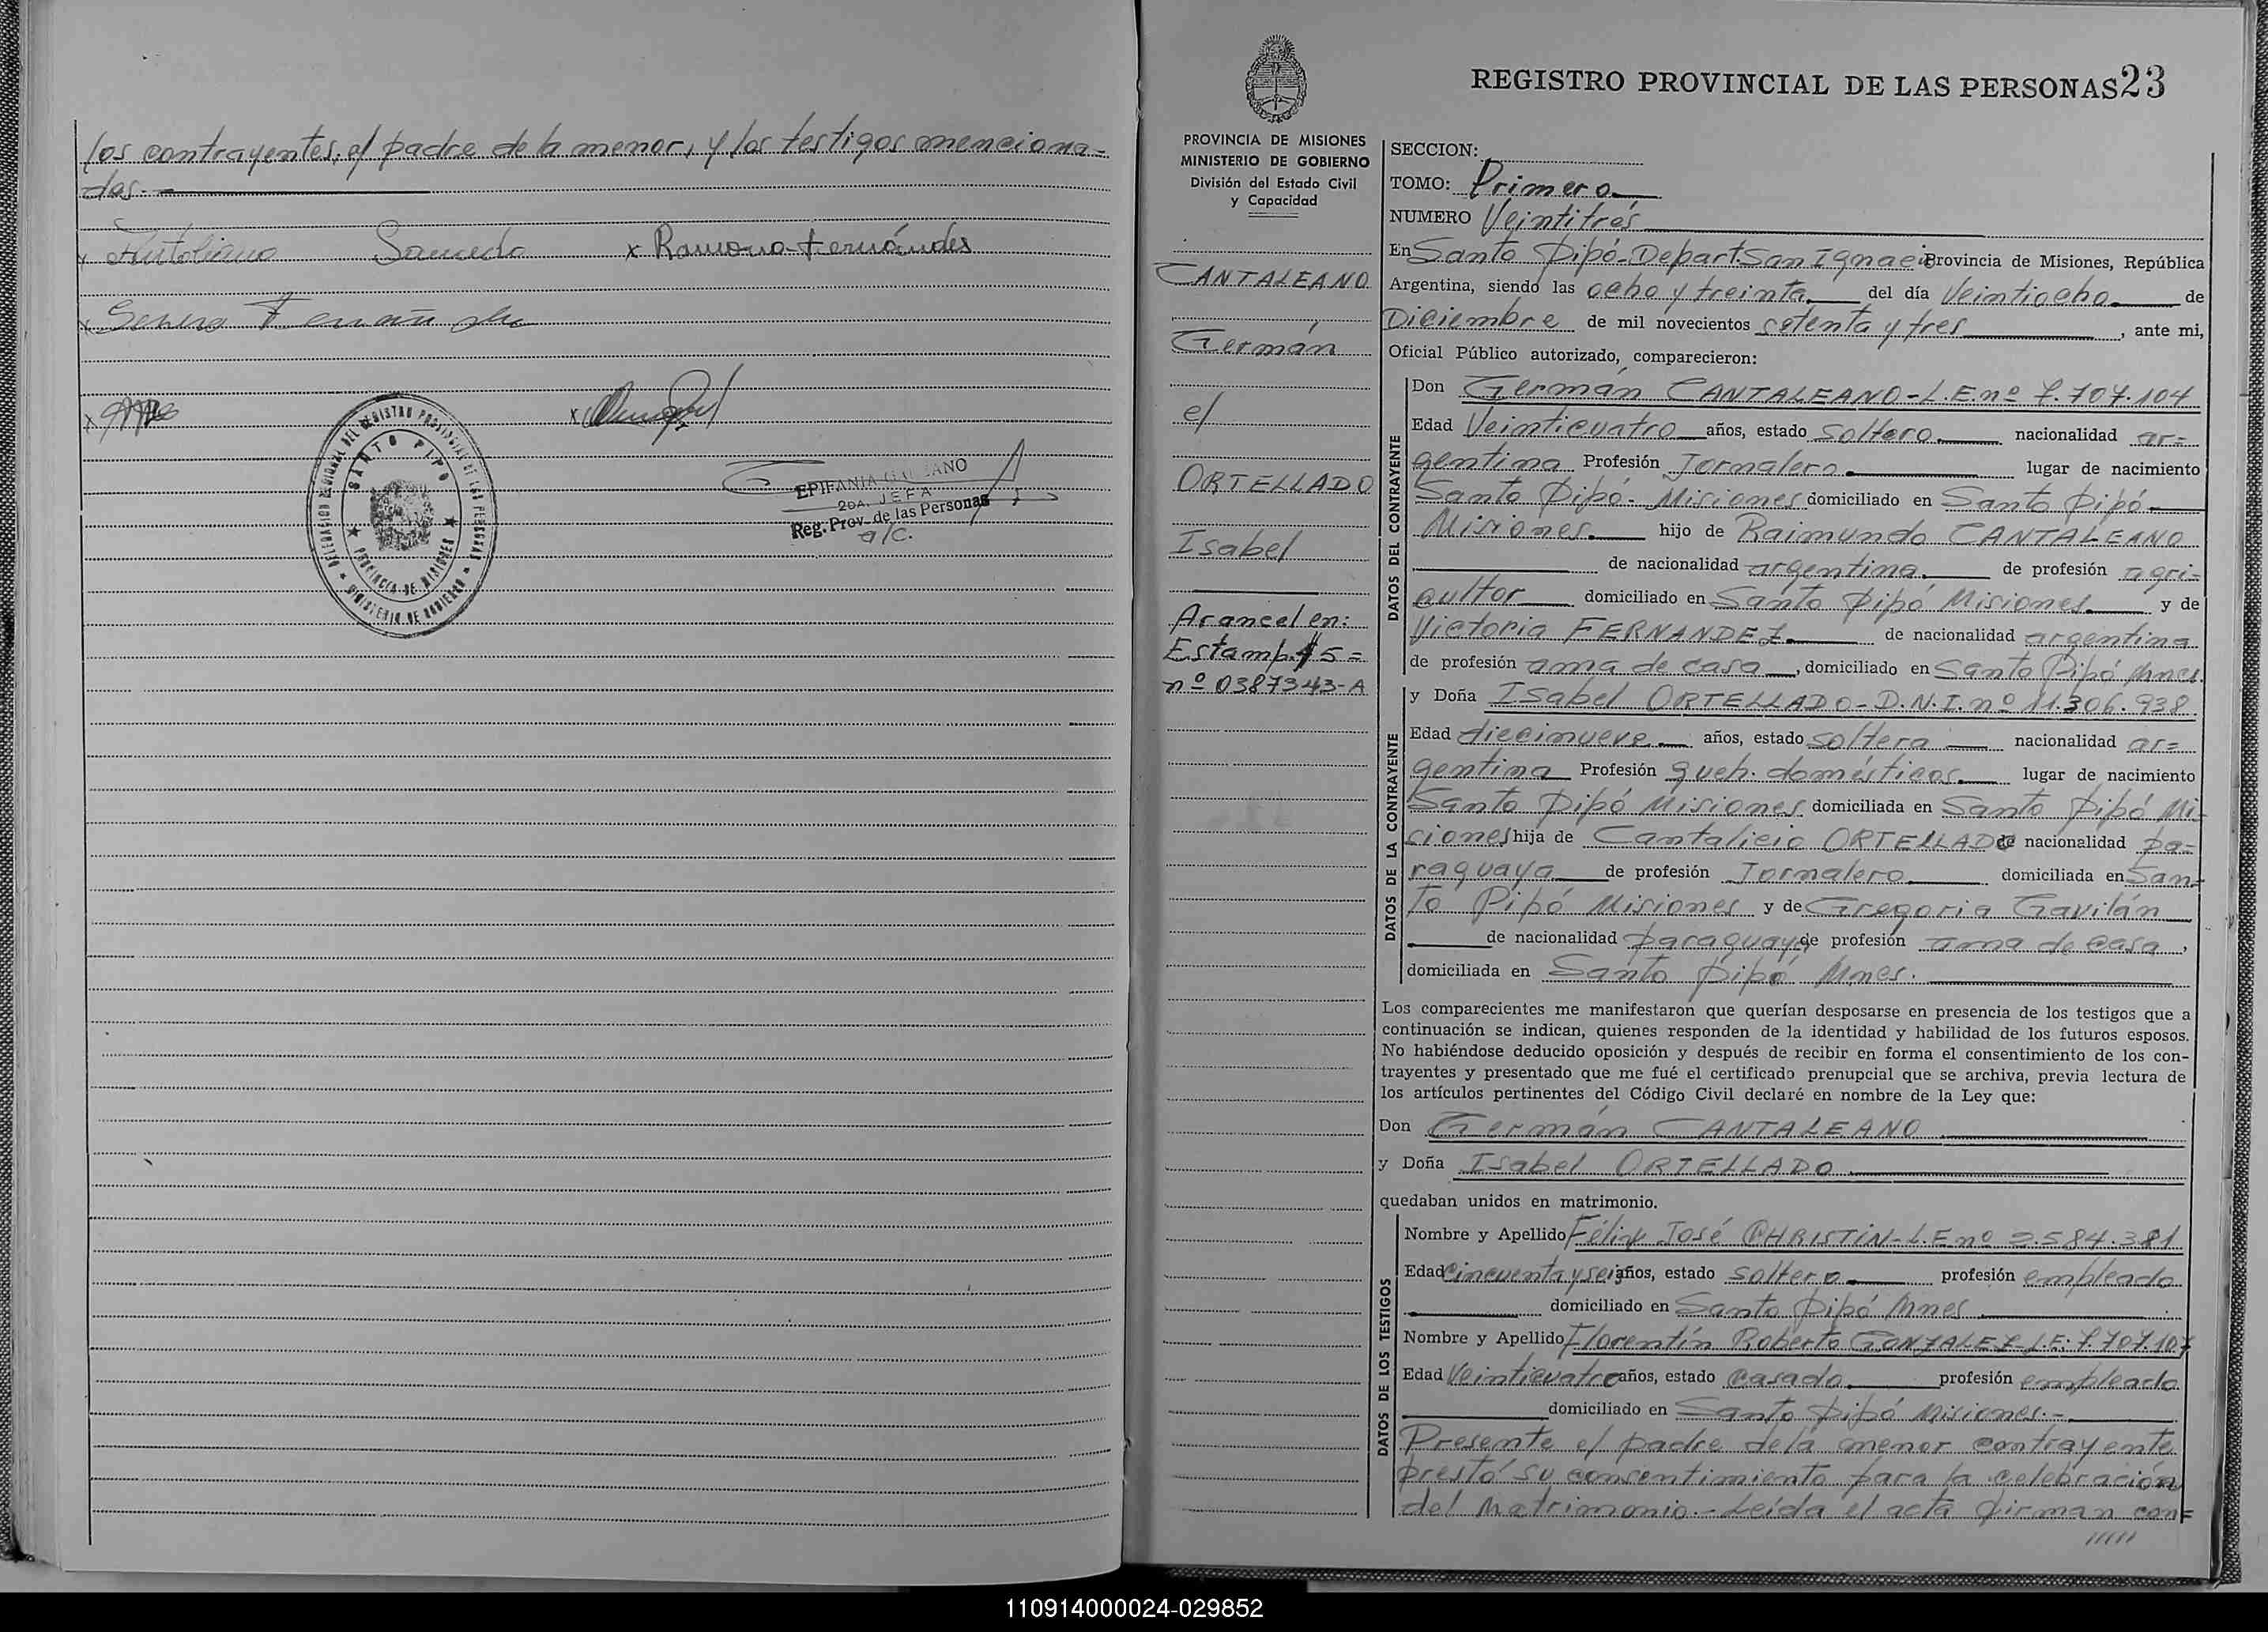 los contrayentes, el padre de la menor, y los testigos menciona=
dos.-
Antoliano Saucedo x Ramona Fernándes
x
x
DELEGACION REGIONAL DEL REGISTRO PROVINCIAL DE LAS PERSONAS
SANTO PIPO
PROVINCIA DE MISIONES
MINISTERIO DE GOBIERNO
EPIFANIA
2DA. JEFA
Reg. Prov. de las Personas
a/c.
REGISTRO PROVINCIAL DE LAS PERSONAS 23
PROVINCIA DE MISIONES
MINISTERIO DE GOBIERNO
División del Estado Civil
y Capacidad
CANTALEANO
Germán
e/
ORTELLADO
Isabel
Arancel en:
Estamp. $ 5=
nº 0387343-A
SECCION:
TOMO: Primero
NUMERO Veintitrés
En Santo Pipó-Depart. San Ignacio Provincia de Misiones, República
Argentina, siendo las ocho y treinta del día Veintiocho de
Diciembre de mil novecientos setenta y tres, ante mi,
Oficial Público autorizado, comparecieron:
DATOS DEL CONTRAYENTE
Don Germán CANTALEANO-L.E.nº 7.707.104
Edad Veinticuatro años, estado soltero nacionalidad ar=
gentina Profesión Jornalero lugar de nacimiento
Santo Pipó- Misiones domiciliado en Santo Pipó
Misiones hijo de Raimundo CANTALEANO
de nacionalidad argentina de profesión agri=
cultor domiciliado en Santo Pipó Misiones y de
Victoria FERNANDEZ de nacionalidad argentina
de profesión ama de casa, domiciliado en Santo Pipó Mnes.
DATOS DE LA CONTRAYENTE
y Doña Isabel ORTELLADO-D.N.I.nº 11.306.938
Edad diecinueve años, estado soltera nacionalidad ar=
gentina Profesión queh. domésticos lugar de nacimiento
Santo Pipó Misiones domiciliada en Santo Pipó Mi=
siones hija de Cantalicio ORTELLADO de nacionalidad pa=
raguaya de profesión Jornalero domiciliada en San=
to Pipó Misiones y de Gregoria Gavilán
de nacionalidad paraguaya de profesión ama de casa,
domiciliada en Santo Pipó Mnes.
Los comparecientes me manifestaron que querían desposarse en presencia de los testigos que a
continuación se indican, quienes responden de la identidad y habilidad de los futuros esposos.
No habiéndose deducido oposición y después de recibir en forma el consentimiento de los con-
trayentes y presentado que me fué el certificado prenupcial que se archiva, previa lectura de
los artículos pertinentes del Código Civil declaré en nombre de la Ley que:
Don Germán CANTALEANO
y Doña Isabel ORTELLADO
quedaban unidos en matrimonio.
DATOS DE LOS TESTIGOS
Nombre y Apellido Félix José CHRISTIN-L.E.nº 2.584.381
Edad Cincuenta y seis años, estado soltero profesión empleado
domiciliado en Santo Pipó Mnes
Nombre y Apellido Florentín Roberto GONZALEZ-L.E: 7.707.107
Edad Veinticuatro años, estado casado profesión empleado
domiciliado en Santo Pipó Misiones.-
Presente el padre de la menor contrayente
prestó su consentimiento para la celebración
del matrimonio.-Leída el acta firman con=
/////
110914000024-029852